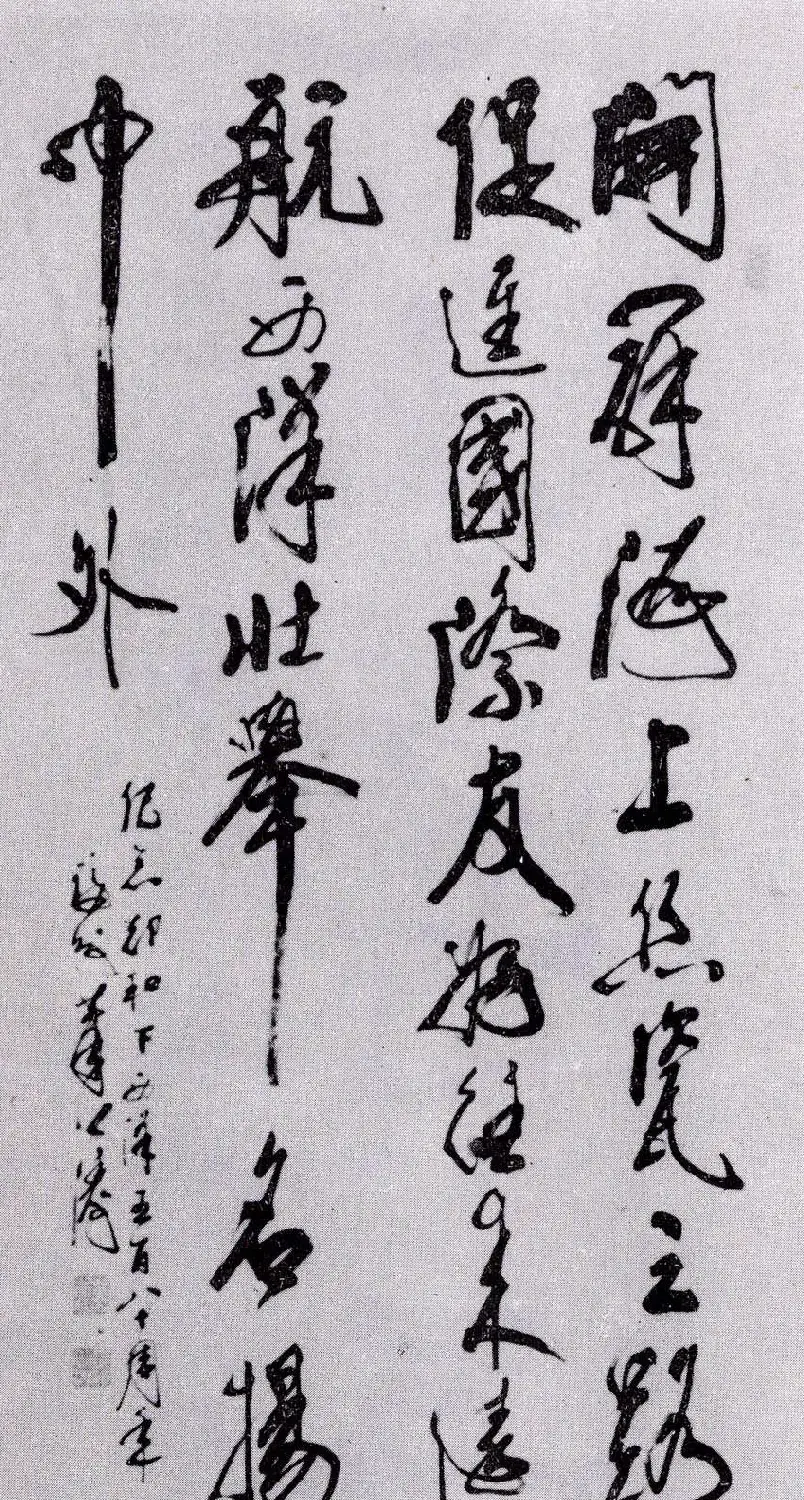 開辟海上絲瓷之路
促進國際友好往來遠
航西洋壯舉名揚
中外
紀念鄭和下西洋五百八十周年